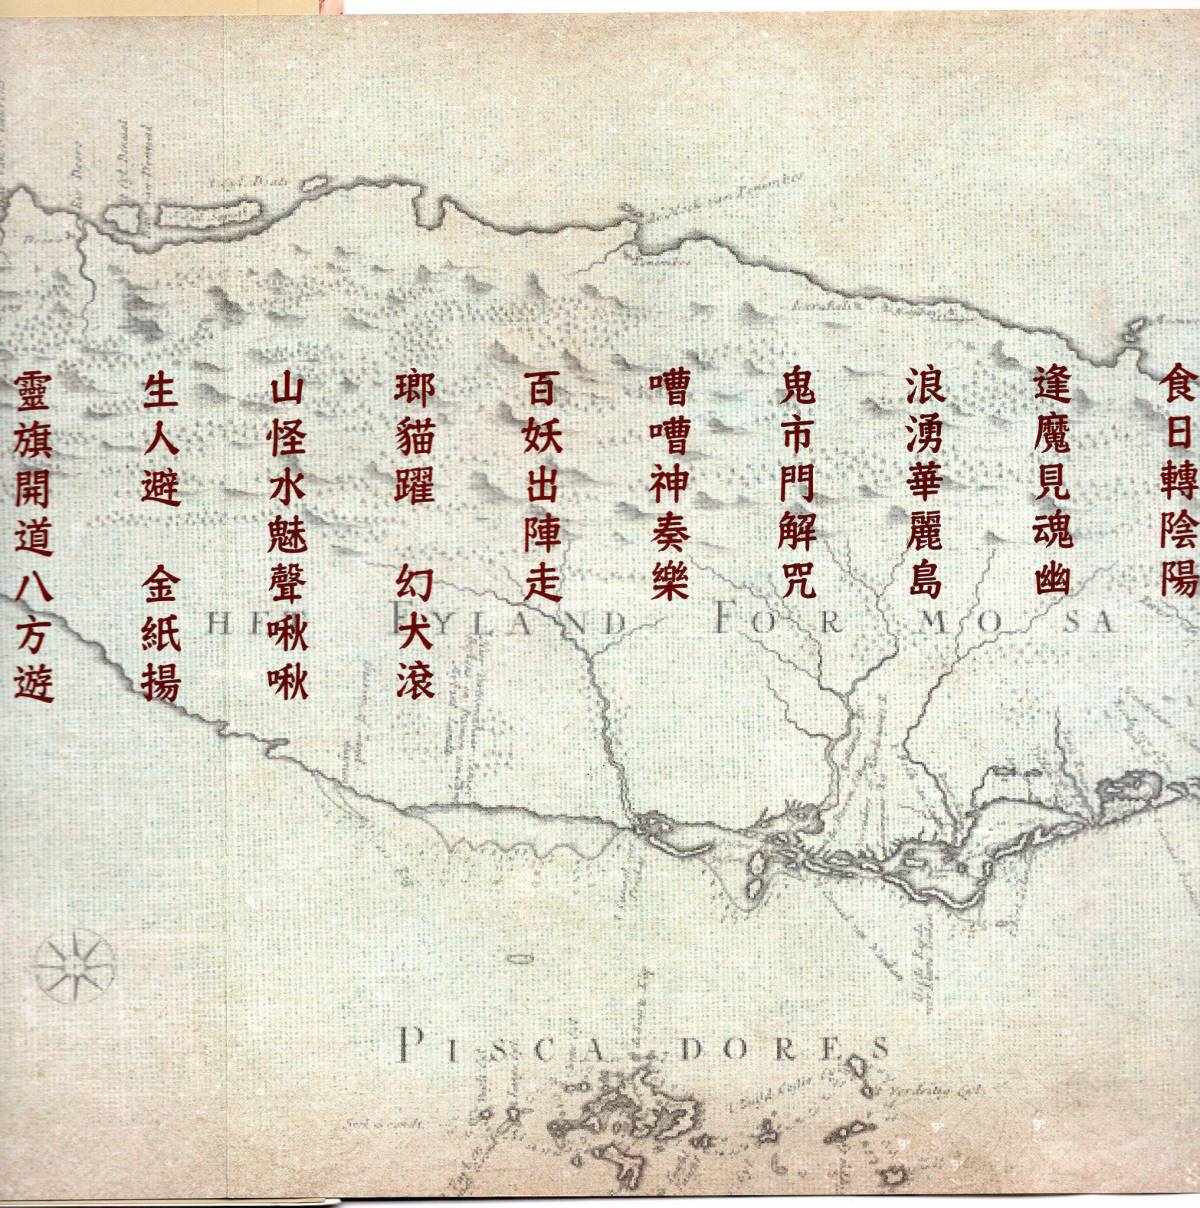 食日轉陰陽
逢魔見魂幽
浪湧華麗島
鬼市門解咒
嘈嘈神奏樂
百妖出陣走
瑯貓躍　幻犬滾
山怪水魅聲啾啾
生人避　金紙揚
靈旗開道八方遊
HET EYLAND FORMOSA
PISCADORES